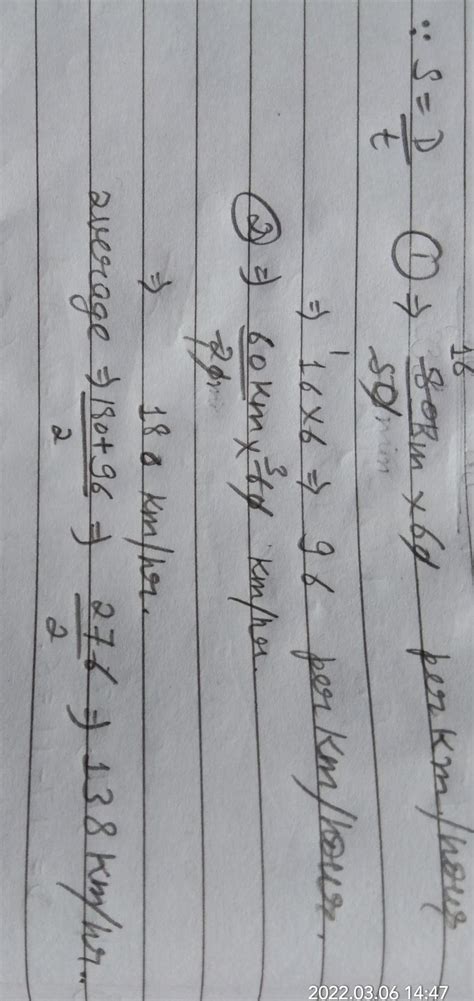 ∵ S = D/t ① ⇒ 16 80km/50min × 60 per km/hour
⇒ 16×6 ⇒ 96 per km/hour.
② ⇒ 60km/20min × 3 60 km/hr.
⇒ 180 km/hr.
average ⇒ 180+96/2 ⇒ 276/2 ⇒ 138 km/hr..
2022.03.06 14:47